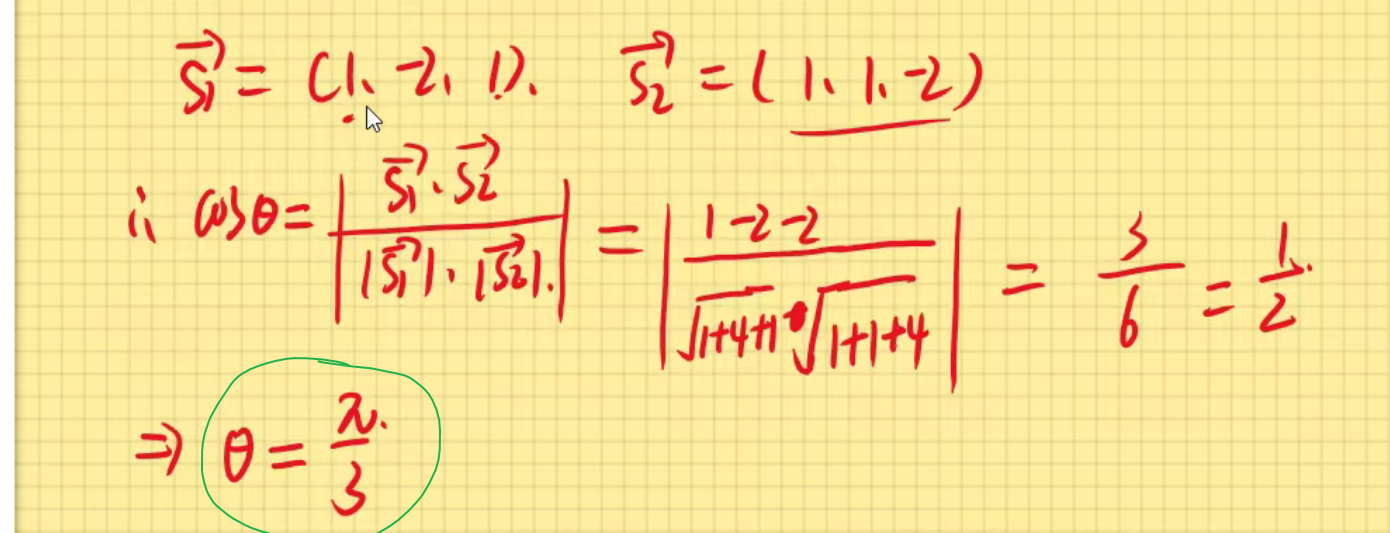 $\vec{S_1} = (1、-2、1).$ $\vec{S_2} = (1、1、-2)$
$\therefore \cos\theta = \left| \frac{\vec{S_1} \cdot \vec{S_2}}{|\vec{S_1}| \cdot |\vec{S_2}|} \right| = \left| \frac{1-2-2}{\sqrt{1+4+1} \cdot \sqrt{1+1+4}} \right| = \frac{3}{6} = \frac{1}{2}.$
$\Rightarrow \theta = \frac{\pi}{3}$